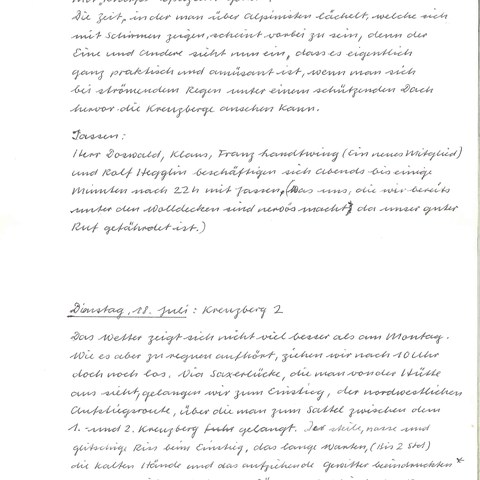 Die Zeit, in der man über Alpinisten lächelt, welche sich
mit Schirmen zeigen, scheint vorbei zu sein, denn der
Eine und Andere sieht nun ein, dass es eigentlich
ganz praktisch und amüsant ist, wenn man sich
bei strömendem Regen unter einem schützenden Dach
hervor die Kreuzberge ansehen kann.
Jassen:
Herr Doswald, Klaus, Franz Landtwing (Ein neues Mitglied)
und Ralf Hegglin beschäftigen sich abends bis einige
Minuten nach 22h mit Jassen, (Was uns, die wir bereits
unter den Wolldecken sind nervös macht, da unser guter
Ruf gefährdet ist.)
Dienstag, 18. Juli: Kreuzberg 2
Das Wetter zeigt sich nicht viel besser als am Montag.
Wie es aber zu regnen aufhört, ziehen wir nach 10 Uhr
doch noch los. Via Saxerlücke, die man von der Hütte
aus sieht, gelangen wir zum Einstieg, der nordwestlichen
Aufstiegsroute, über die man zum Sattel zwischen dem
1. und 2. Kreuzberg gelangt. Der steile, nasse und
glitschige Riss beim Einstieg, das lange Warten, (1 bis 2 Std)
die kalten Hände und das aufziehende Gewitter beeindruckten